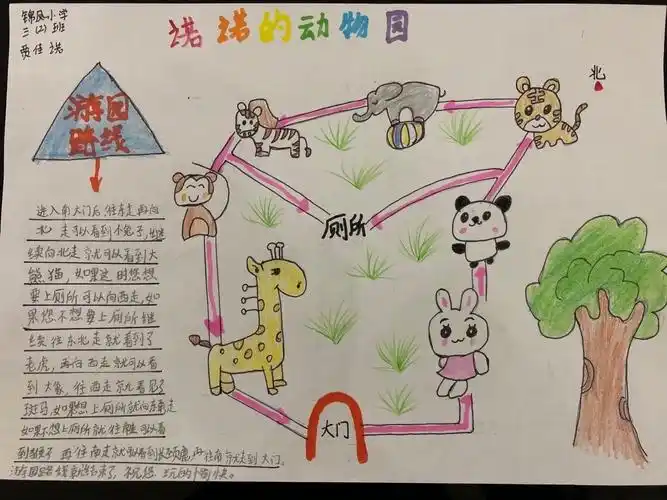 锦凤小学
三(2)班
贾佳诺
诺诺的动物园
北
游园
路线
厕所
大门
进入南大门后往东走再向
北走可以看到小兔子,继
续向北走就可以看到大
熊猫,如果这时您想
要上厕所可以向西走,如
果您不想要上厕所继
续往东北走就看到了
老虎,再向西走就可以看
到大象,往西走就看见了
斑马,如果想上厕所就向东南走
如果不想上厕所就往西南可以看
到猴子再往南走就可以看到长颈鹿,再往南就走到大门。
游园路线就结束了,祝您玩的愉快。